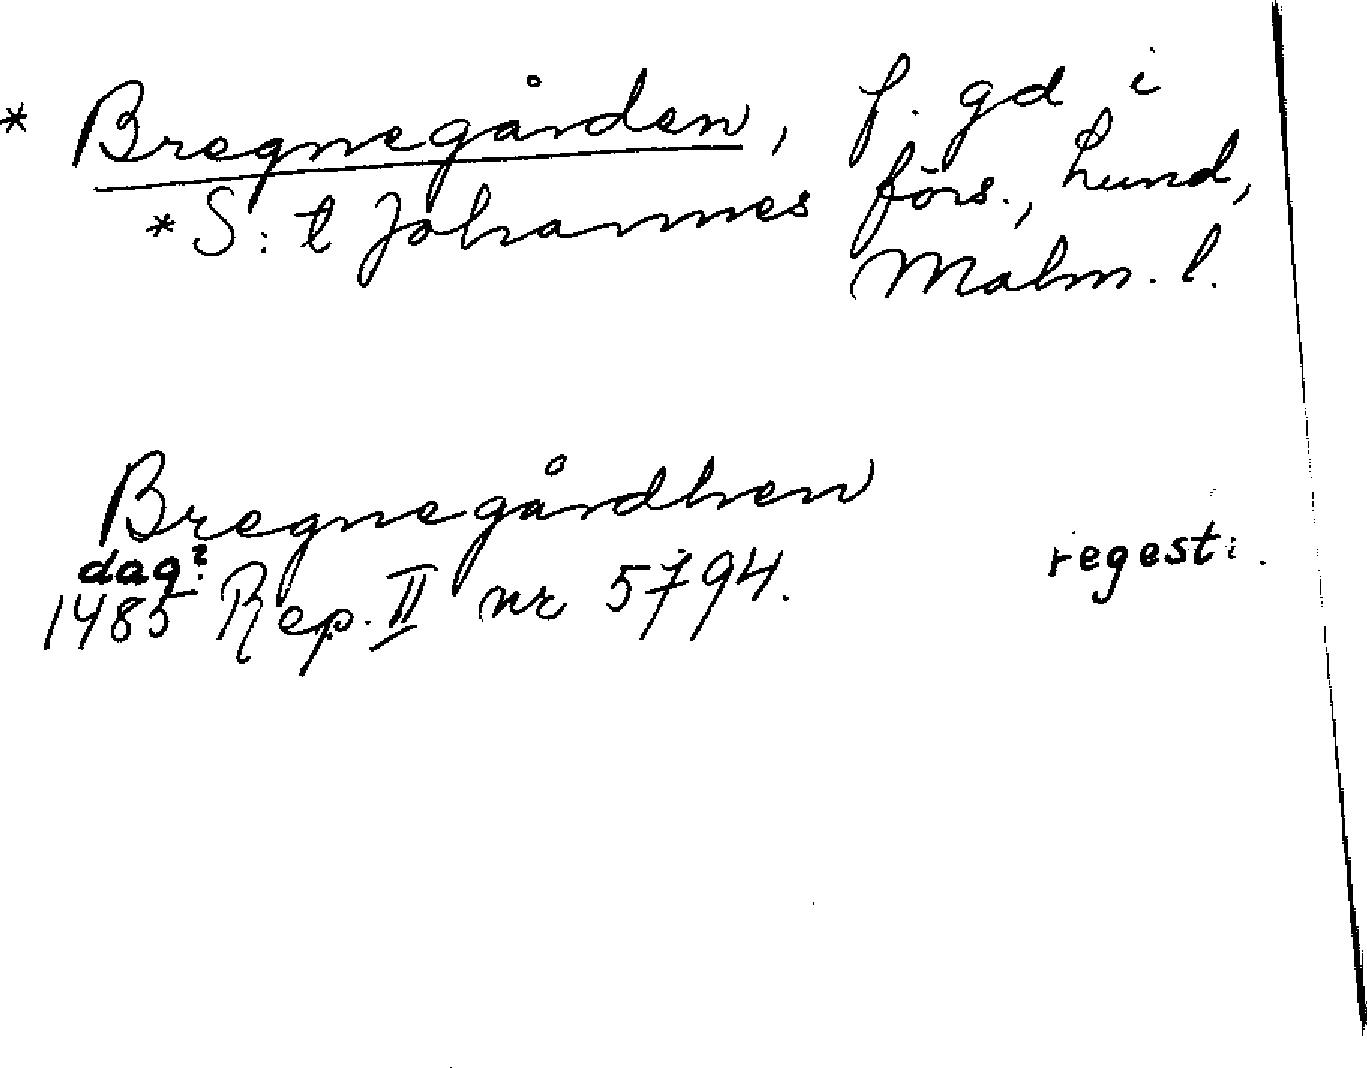 * Bregnegården, f. gd i
* S:t Johannes förs., Lund,
Malm. l.
Bregnegårdhen
dag? regest.
1485 Rep. II nr 5794.